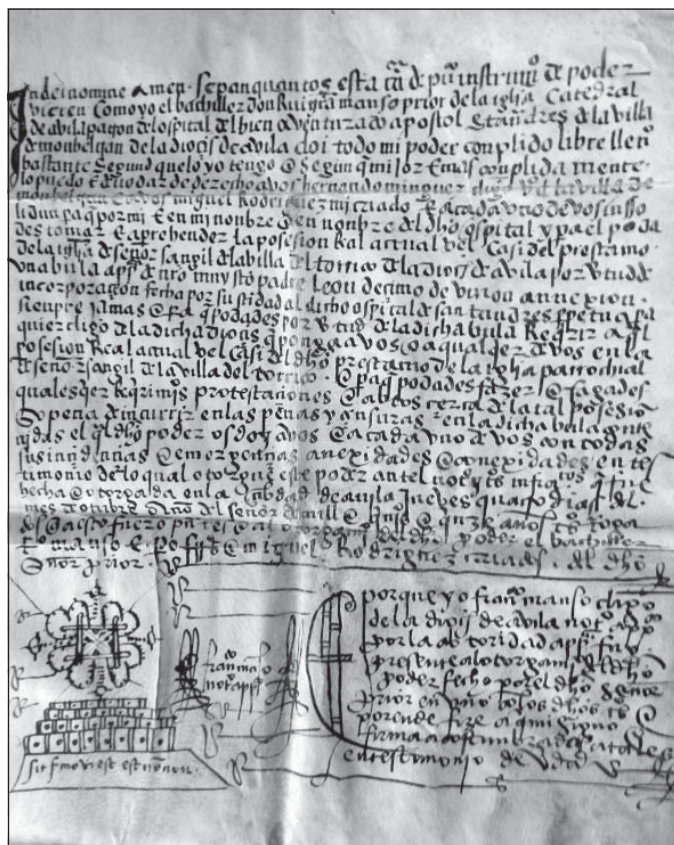 In dei nomine amen. sepan quantos esta cra de puco instrumo de poder
vieren como yo el bachiller don Rui grra manso prior de la iglia catedral
de avila patron del ospital del bien aventurado apostol st andres de la villa
de monbeltran de la diocis de avila doi todo mi poder conplido libre llenro
bastante segund que lo yo tengo e segun q mijor e mas conplida mente
lo puedo e devo dar de derecho a vos hernan dominguez cligo vo de la villa de
monbeltran e a vos miguel Rodriguez mi criado e a cada vno de vos in so
lidun pa q por mi e en mi nonbre e en nonbre del dho ospital y pa el podades
des tomar e aprehender la posesion Real actual vel casi del prestamo
de la iglia de señor san gil de la villa del torrico de la diocis de avila por vertud de
vna bula appca de nro muy sto padre Leon decimo de vnion annexion
incorporaçion fecha por su stidad al dicho ospital de sant andres perpetua pa
sienpre jamas e pa q podades por vtud de la dicha bula Reqrir a
quier cligo de la dicha diocis q ponga a vos o a qualqer de vos en la
posesion Real actual vel casi del dho prestamo de la iglia parrochial
de señor san gil de la villa del torrico. e pa q podades fazer e fagades
qualesqer reqrimios protestaciones e abtos cerca de la tal posesio
so pena de incurrir en las penas y çensuras en la dicha bula conte
nidas el ql dho poder os doy a vos e a cada vno de vos con todas
sus incidençias e emergençias anexidades e conexidades en tes
timonio de lo qual otorgue este poder ante el noto y tos infraos q fue
fecha e otorgada en la çibdad de avila jueves quatro dias del
mes de otubre año del señor de mill e quios e quinze años tos q
dis a esto fuero prtes al otorgamio del dho poder el bachiller
manso e po e miguel Rodriguez criados del dho
señor prior.
franco manso
noto appco
sit
E porque yo franco manso cligo
de la diocis de avila noto appco
por la abtoridad appca fuy
presente al otorgamio del dho
poder fecho por el dho señor
prior en vno con los dhos tos
porende fize aqui mi signo e
firma acostunbrada a tal
en testimonio de vdad